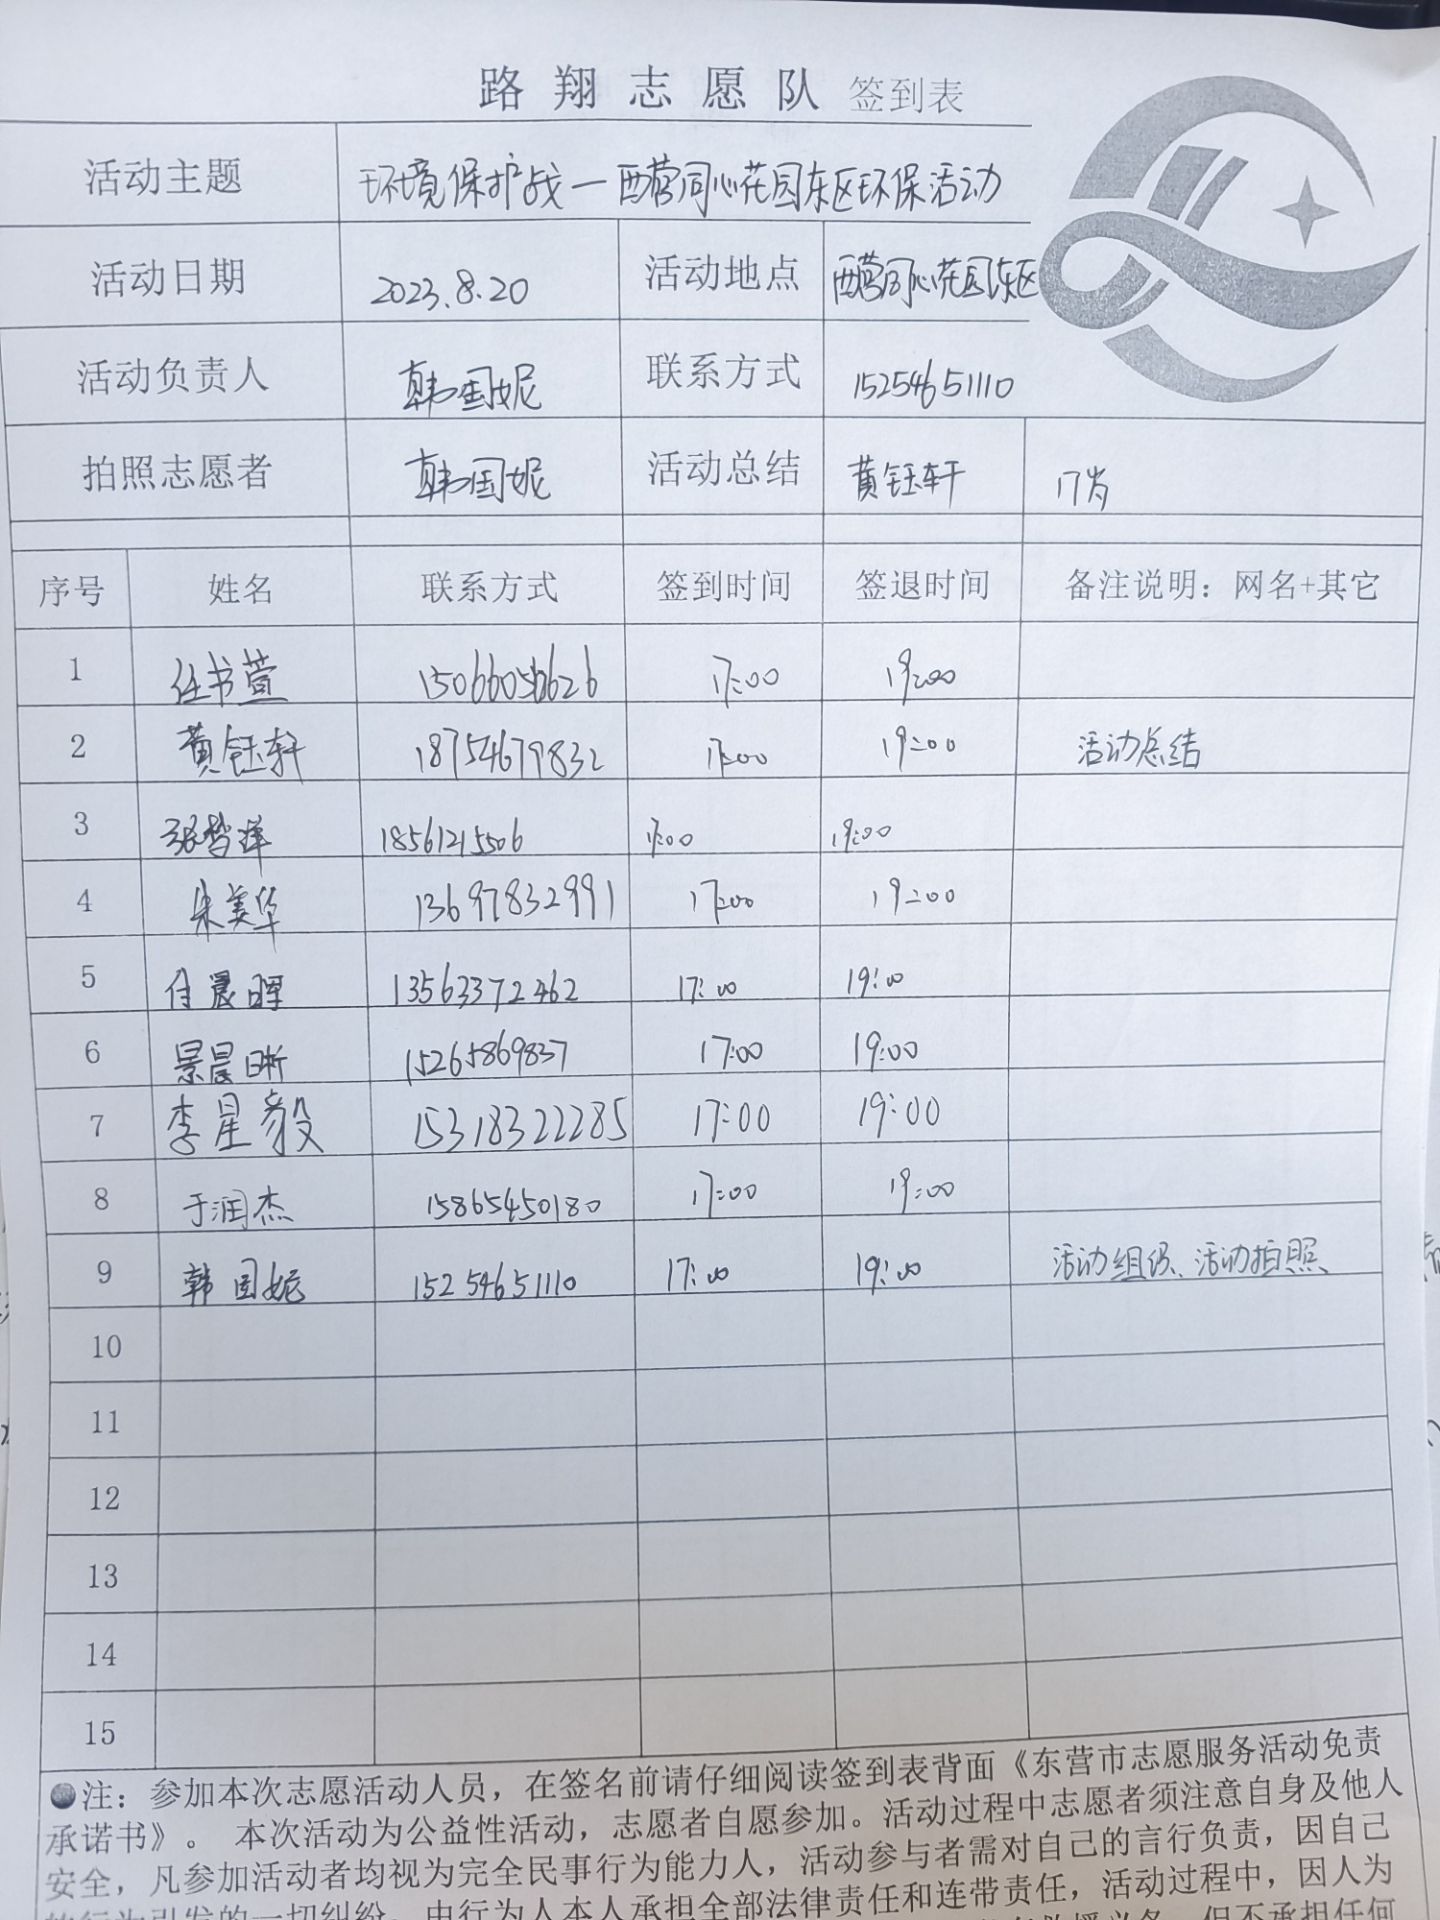 路翔志愿队 签到表
活动主题 环境保护战—西营同心花园东区环保活动
活动日期 2023.8.20 活动地点 西营同心花园东区
活动负责人 韩国妮 联系方式 15254651110
拍照志愿者 韩国妮 活动总结 黄钰轩 17岁
序号 姓名 联系方式 签到时间 签退时间 备注说明：网名+其它
1 任书萱 17:00 19:00
2 黄钰轩 18754679832 17:00 19:00 活动总结
3 张哲洋 18561215506 17:00 19:00
4 朱美华 13697832991 17:00 19:00
5 付晨晖 13563372462 17:00 19:00
6 景晨晰 15265869837 17:00 19:00
7 李星毅 15318322285 17:00 19:00
8 于润杰 15865450180 17:00 19:00
9 韩国妮 15254651110 17:00 19:00 活动组织、活动拍照
10
11
12
13
14
15
注：参加本次志愿活动人员，在签名前请仔细阅读签到表背面《东营市志愿服务活动免责
承诺书》。 本次活动为公益性活动，志愿者自愿参加。活动过程中志愿者须注意自身及他人
安全，凡参加活动者均视为完全民事行为能力人，活动参与者需对自己的言行负责，因自己
的行为引发的一切纠纷，由行为人本人承担全部法律责任和连带责任，活动过程中，因人为
但不承担任何